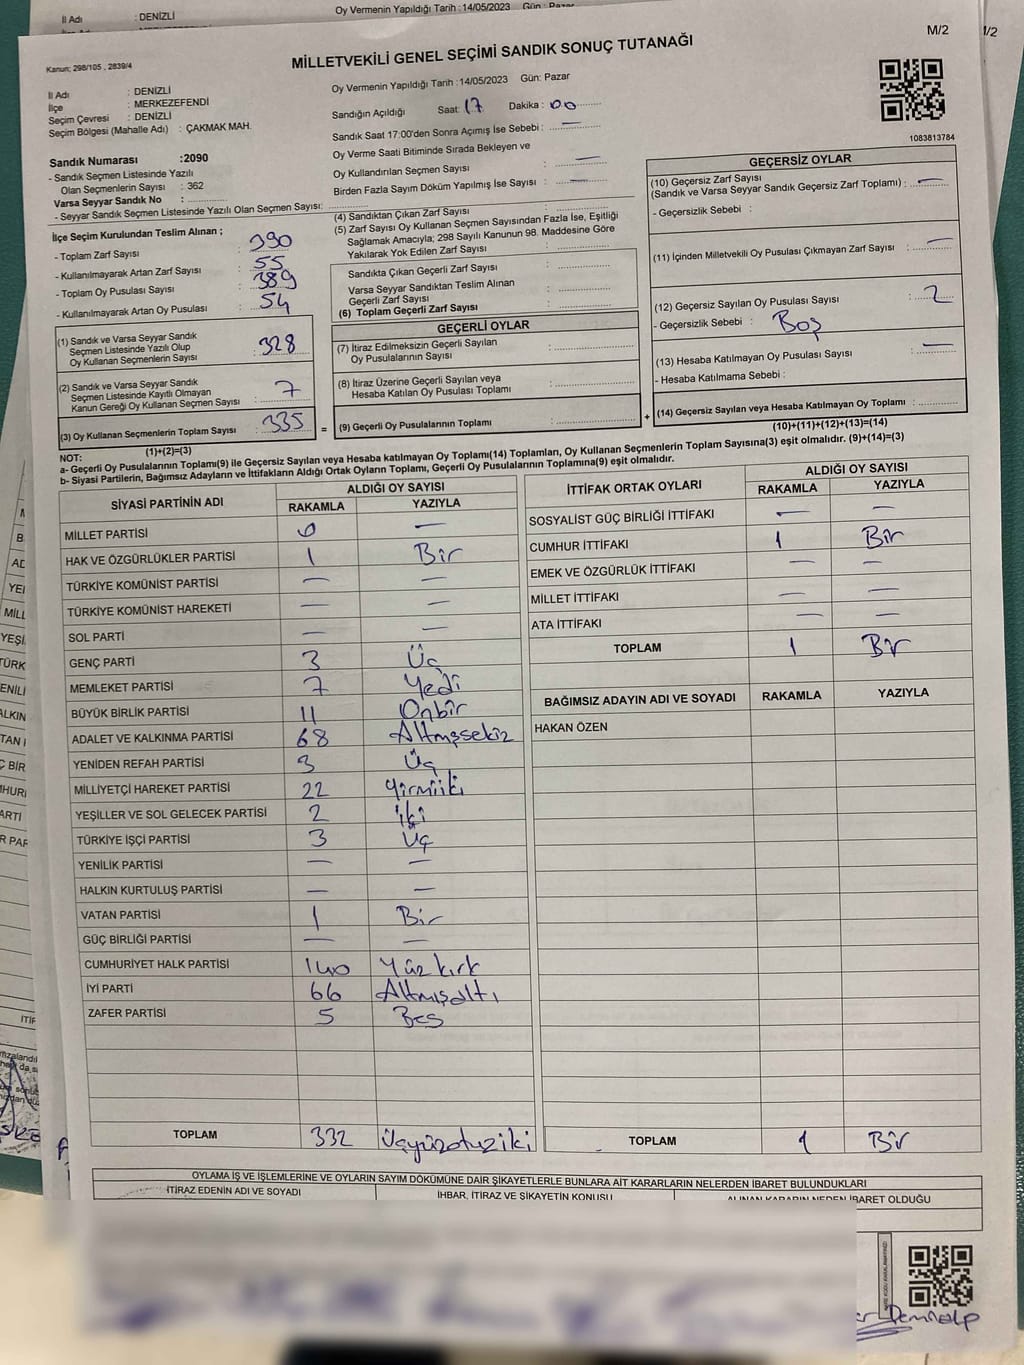 İl Adı : DENİZLİ
Oy Vermenin Yapıldığı Tarih :14/05/2023 Gün: Pazar
M/2
Kanun; 298/105 , 2839/4
MİLLETVEKİLİ GENEL SEÇİMİ SANDIK SONUÇ TUTANAĞI
M/2
İl Adı : DENİZLİ
İlçe : MERKEZEFENDİ
Seçim Çevresi : DENİZLİ
Seçim Bölgesi (Mahalle Adı) : ÇAKMAK MAH.
Sandık Numarası :2090
- Sandık Seçmen Listesinde Yazılı
Olan Seçmenlerin Sayısı : 362
Varsa Seyyar Sandık No :
- Seyyar Sandık Seçmen Listesinde Yazılı Olan Seçmen Sayısı:
Oy Vermenin Yapıldığı Tarih :14/05/2023 Gün: Pazar
Sandığın Açıldığı Saat: 17 Dakika : 00
Sandık Saat 17:00'den Sonra Açımış İse Sebebi : —
Oy Verme Saati Bitiminde Sırada Bekleyen ve
Oy Kullandırılan Seçmen Sayısı : —
Birden Fazla Sayım Döküm Yapılmış İse Sayısı : —
1083813784
İlçe Seçim Kurulundan Teslim Alınan ;
- Toplam Zarf Sayısı : 390
- Kullanılmayarak Artan Zarf Sayısı : 55
- Toplam Oy Pusulası Sayısı : 389
- Kullanılmayarak Artan Oy Pusulası : 54
(1) Sandık ve Varsa Seyyar Sandık
Seçmen Listesinde Yazılı Olup
Oy Kullanan Seçmenlerin Sayısı : 328
(2) Sandık ve Varsa Seyyar Sandık
Seçmen Listesinde Kayıtlı Olmayan
Kanun Gereği Oy Kullanan Seçmen Sayısı : 7
(3) Oy Kullanan Seçmenlerin Toplam Sayısı : 335
(1)+(2)=(3)
(4) Sandıktan Çıkan Zarf Sayısı :
(5) Zarf Sayısı Oy Kullanan Seçmen Sayısından Fazla İse, Eşitliği
Sağlamak Amacıyla; 298 Sayılı Kanunun 98. Maddesine Göre
Yakılarak Yok Edilen Zarf Sayısı :
Sandıkta Çıkan Geçerli Zarf Sayısı :
Varsa Seyyar Sandıktan Teslim Alınan
Geçerli Zarf Sayısı :
(6) Toplam Geçerli Zarf Sayısı :
GEÇERLİ OYLAR
(7) İtiraz Edilmeksizin Geçerli Sayılan
Oy Pusulalarının Sayısı :
(8) İtiraz Üzerine Geçerli Sayılan veya
Hesaba Katılan Oy Pusulası Toplamı :
= (9) Geçerli Oy Pusulalarının Toplamı : +
GEÇERSİZ OYLAR
(10) Geçersiz Zarf Sayısı
(Sandık ve Varsa Seyyar Sandık Geçersiz Zarf Toplamı) : —
- Geçersizlik Sebebi :
(11) İçinden Milletvekili Oy Pusulası Çıkmayan Zarf Sayısı : —
(12) Geçersiz Sayılan Oy Pusulası Sayısı : 2
- Geçersizlik Sebebi : Boş
(13) Hesaba Katılmayan Oy Pusulası Sayısı : —
- Hesaba Katılmama Sebebi :
(14) Geçersiz Sayılan veya Hesaba Katılmayan Oy Toplamı :
(10)+(11)+(12)+(13)=(14)
NOT:
a- Geçerli Oy Pusulalarının Toplamı(9) ile Geçersiz Sayılan veya Hesaba katılmayan Oy Toplamı(14) Toplamları, Oy Kullanan Seçmenlerin Toplam Sayısına(3) eşit olmalıdır. (9)+(14)=(3)
b- Siyasi Partilerin, Bağımsız Adayların ve İttifakların Aldığı Ortak Oyların Toplamı, Geçerli Oy Pusulalarının Toplamına(9) eşit olmalıdır.
SİYASİ PARTİNİN ADI ALDIĞI OY SAYISI
RAKAMLA YAZIYLA
MİLLET PARTİSİ 0 —
HAK VE ÖZGÜRLÜKLER PARTİSİ 1 Bir
TÜRKİYE KOMÜNİST PARTİSİ — —
TÜRKİYE KOMÜNİST HAREKETİ — —
SOL PARTİ — —
GENÇ PARTİ 3 Üç
MEMLEKET PARTİSİ 7 Yedi
BÜYÜK BİRLİK PARTİSİ 11 Onbir
ADALET VE KALKINMA PARTİSİ 68 Altmışsekiz
YENİDEN REFAH PARTİSİ 3 Üç
MİLLİYETÇİ HAREKET PARTİSİ 22 Yirmiiki
YEŞİLLER VE SOL GELECEK PARTİSİ 2 İki
TÜRKİYE İŞÇİ PARTİSİ 3 Üç
YENİLİK PARTİSİ — —
HALKIN KURTULUŞ PARTİSİ — —
VATAN PARTİSİ 1 Bir
GÜÇ BİRLİĞİ PARTİSİ — —
CUMHURİYET HALK PARTİSİ 140 Yüz kırk
İYİ PARTİ 66 Altmışaltı
ZAFER PARTİSİ 5 Beş
TOPLAM 332 Üçyüzotuziki
İTTİFAK ORTAK OYLARI ALDIĞI OY SAYISI
RAKAMLA YAZIYLA
SOSYALİST GÜÇ BİRLİĞİ İTTİFAKI — —
CUMHUR İTTİFAKI 1 Bir
EMEK VE ÖZGÜRLÜK İTTİFAKI — —
MİLLET İTTİFAKI — —
ATA İTTİFAKI — —
TOPLAM 1 Bir
BAĞIMSIZ ADAYIN ADI VE SOYADI RAKAMLA YAZIYLA
HAKAN ÖZEN
TOPLAM 1 Bir
OYLAMA İŞ VE İŞLEMLERİNE VE OYLARIN SAYIM DÖKÜMÜNE DAİR ŞİKAYETLERLE BUNLARA AİT KARARLARIN NELERDEN İBARET BULUNDUKLARI
İTİRAZ EDENİN ADI VE SOYADI İHBAR, İTİRAZ VE ŞİKAYETİN KONUSU ALINAN KARARIN NEDEN İBARET OLDUĞU